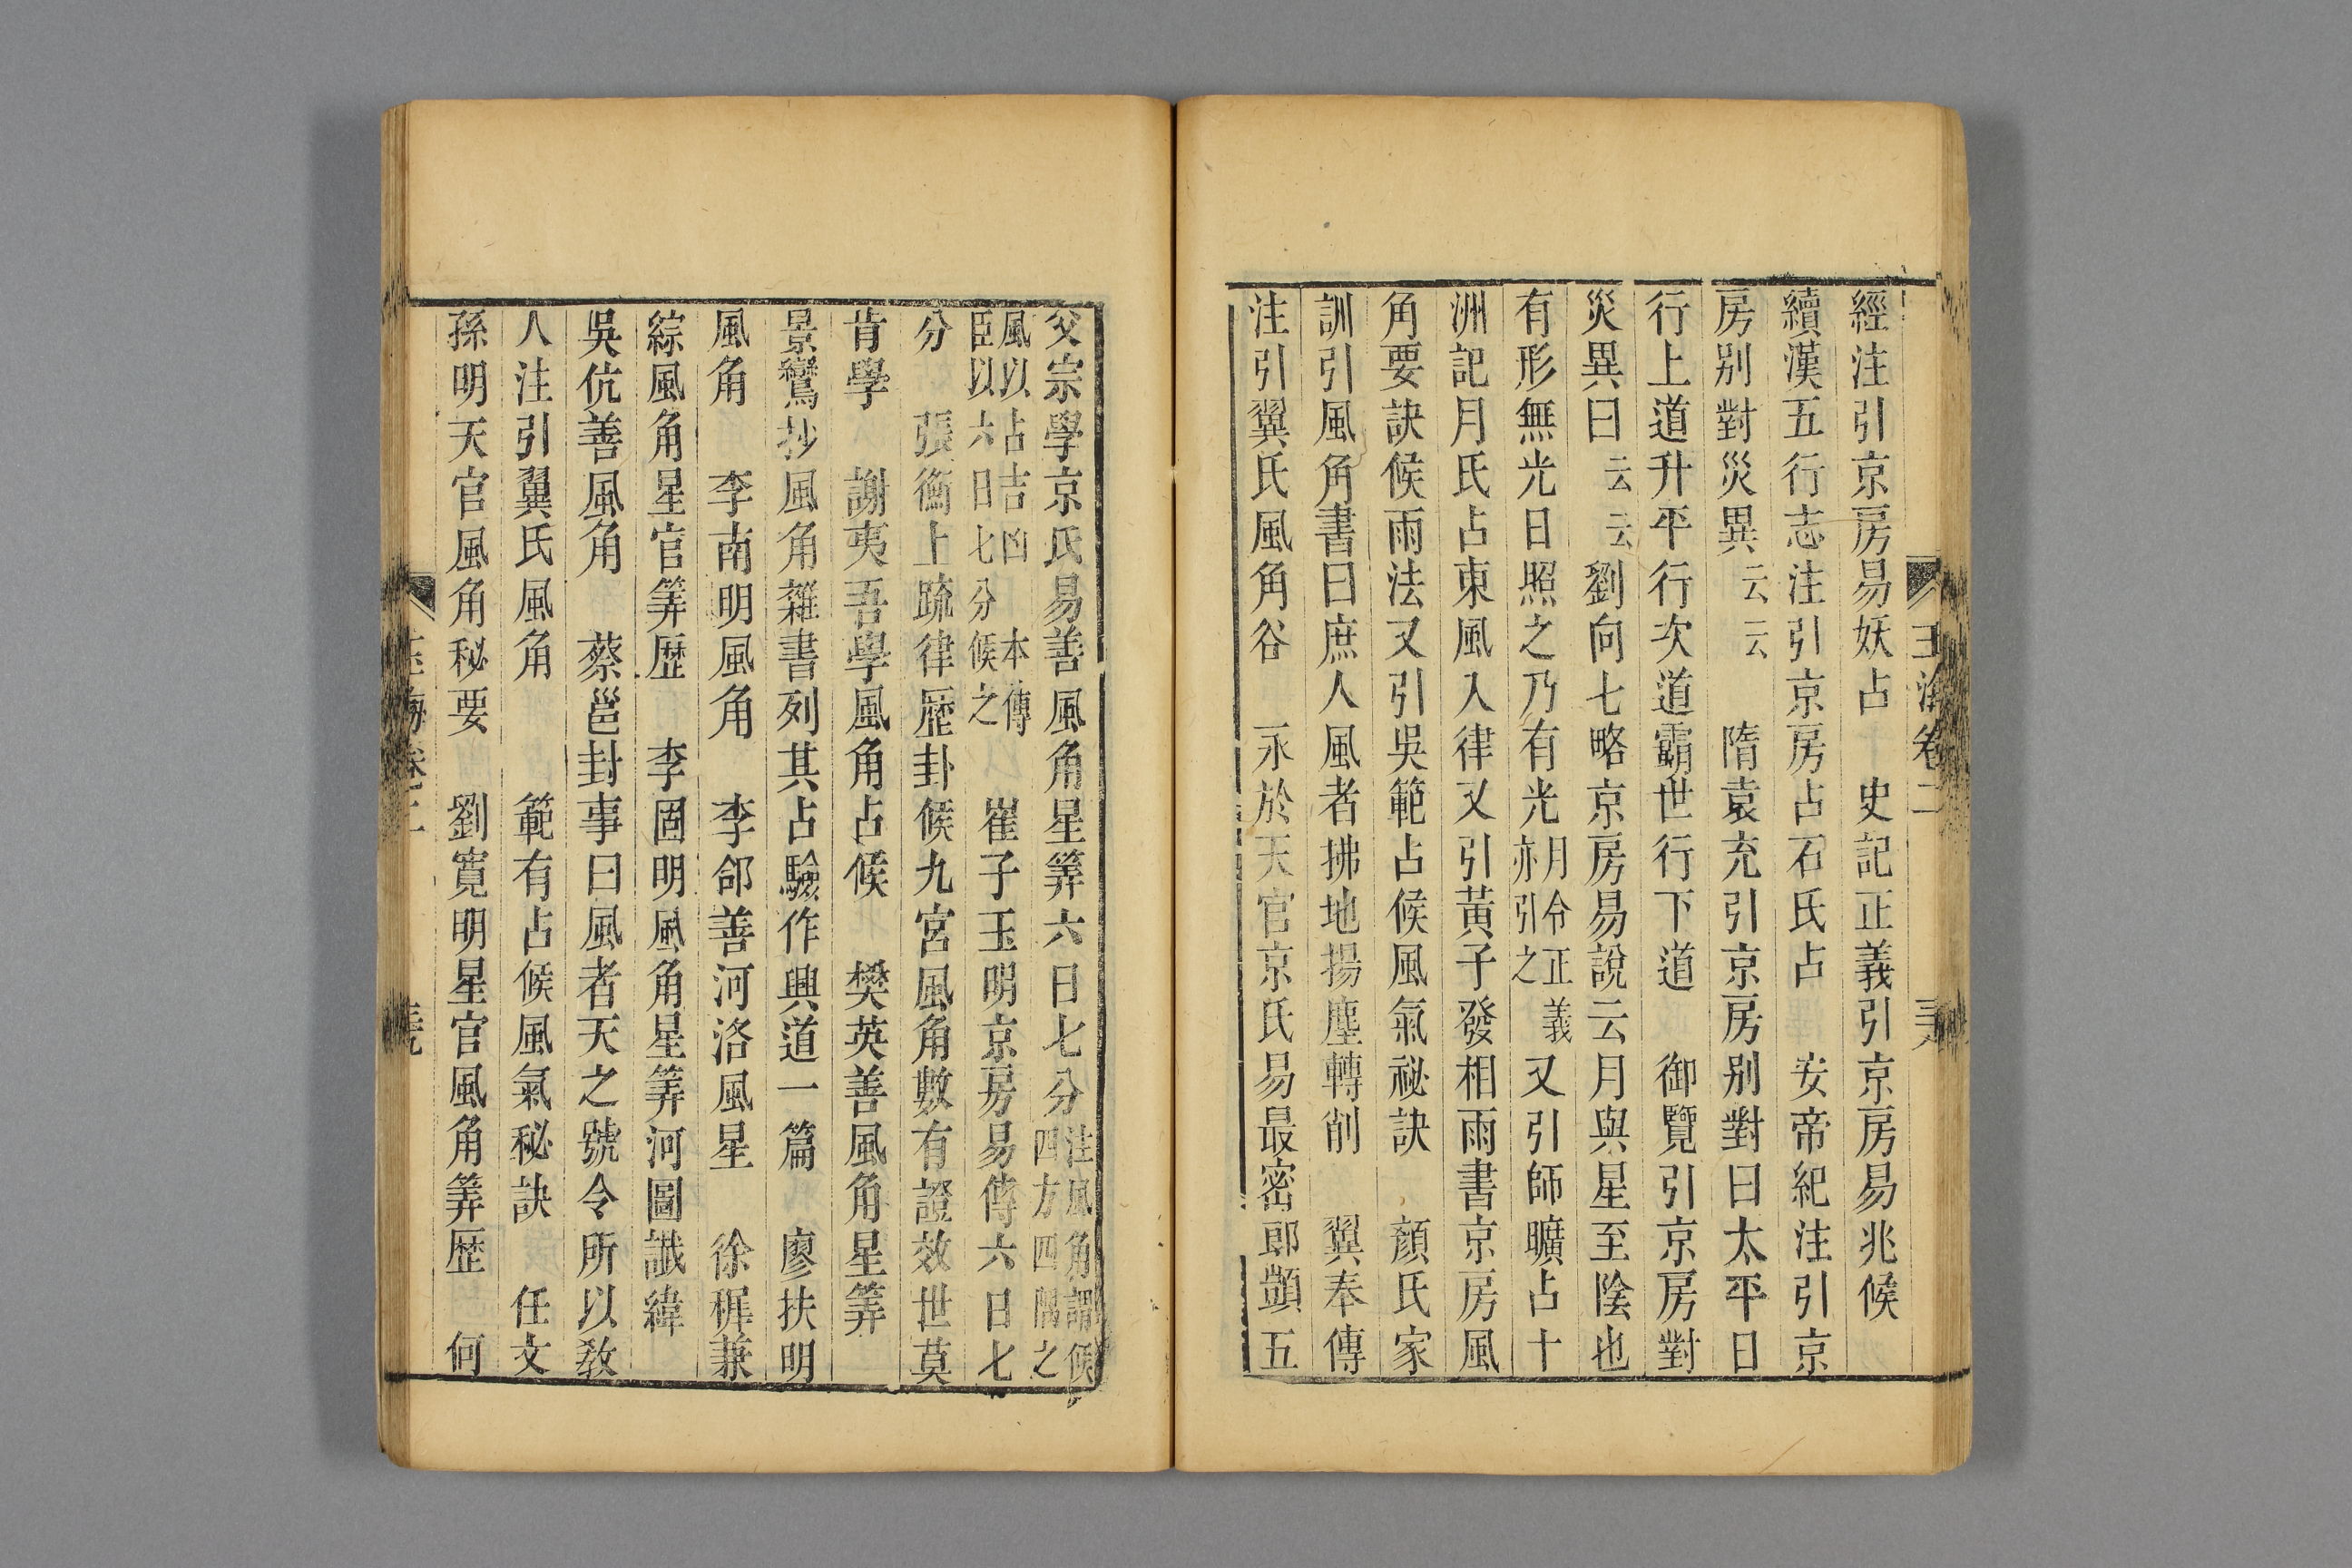 玉海卷二
經注引京房易妖占 史記正義引京房易兆候
續漢五行志注引京房占石氏占 安帝紀注引京
房别對災異云云 隋袁充引京房别對曰太平日
行上道升平行次道霸世行下道 御覽引京房對
災異曰云云劉向七略京房易說云月與星至陰也
有形無光日照之乃有光月令正義亦引之又引師曠占十
洲記月氏占東風入律又引黃子發相雨書京房風
角要訣候雨法又引吳範占候風氣祕訣 顏氏家
訓引風角書曰庶人風者拂地揚塵轉削 翼奉傳
注引翼氏風角谷 永於天官京氏易最密郎顗五
父宗學京氏易善風角星筭六日七分注風角謂候四方四隅之
風以占吉凶 本傳臣以六日七分候之 崔子玉明京房易傳六日七
分 張衡上䟽律歷卦候九宮風角數有證效世莫
肯學 謝夷吾學風角占候 樊英善風角星筭
景鸞抄風角雜書列其占驗作興道一篇 廖扶明
風角 李南明風角 李郃善河洛風星 徐穉兼
綜風角星官筭歷 李固明風角星筭河圖讖緯
吳伉善風角 蔡邕封事曰風者天之號令所以敎
人注引翼氏風角 範有占候風氣秘訣 任文
孫明天官風角秘要 劉寬明星官風角筭歷 何